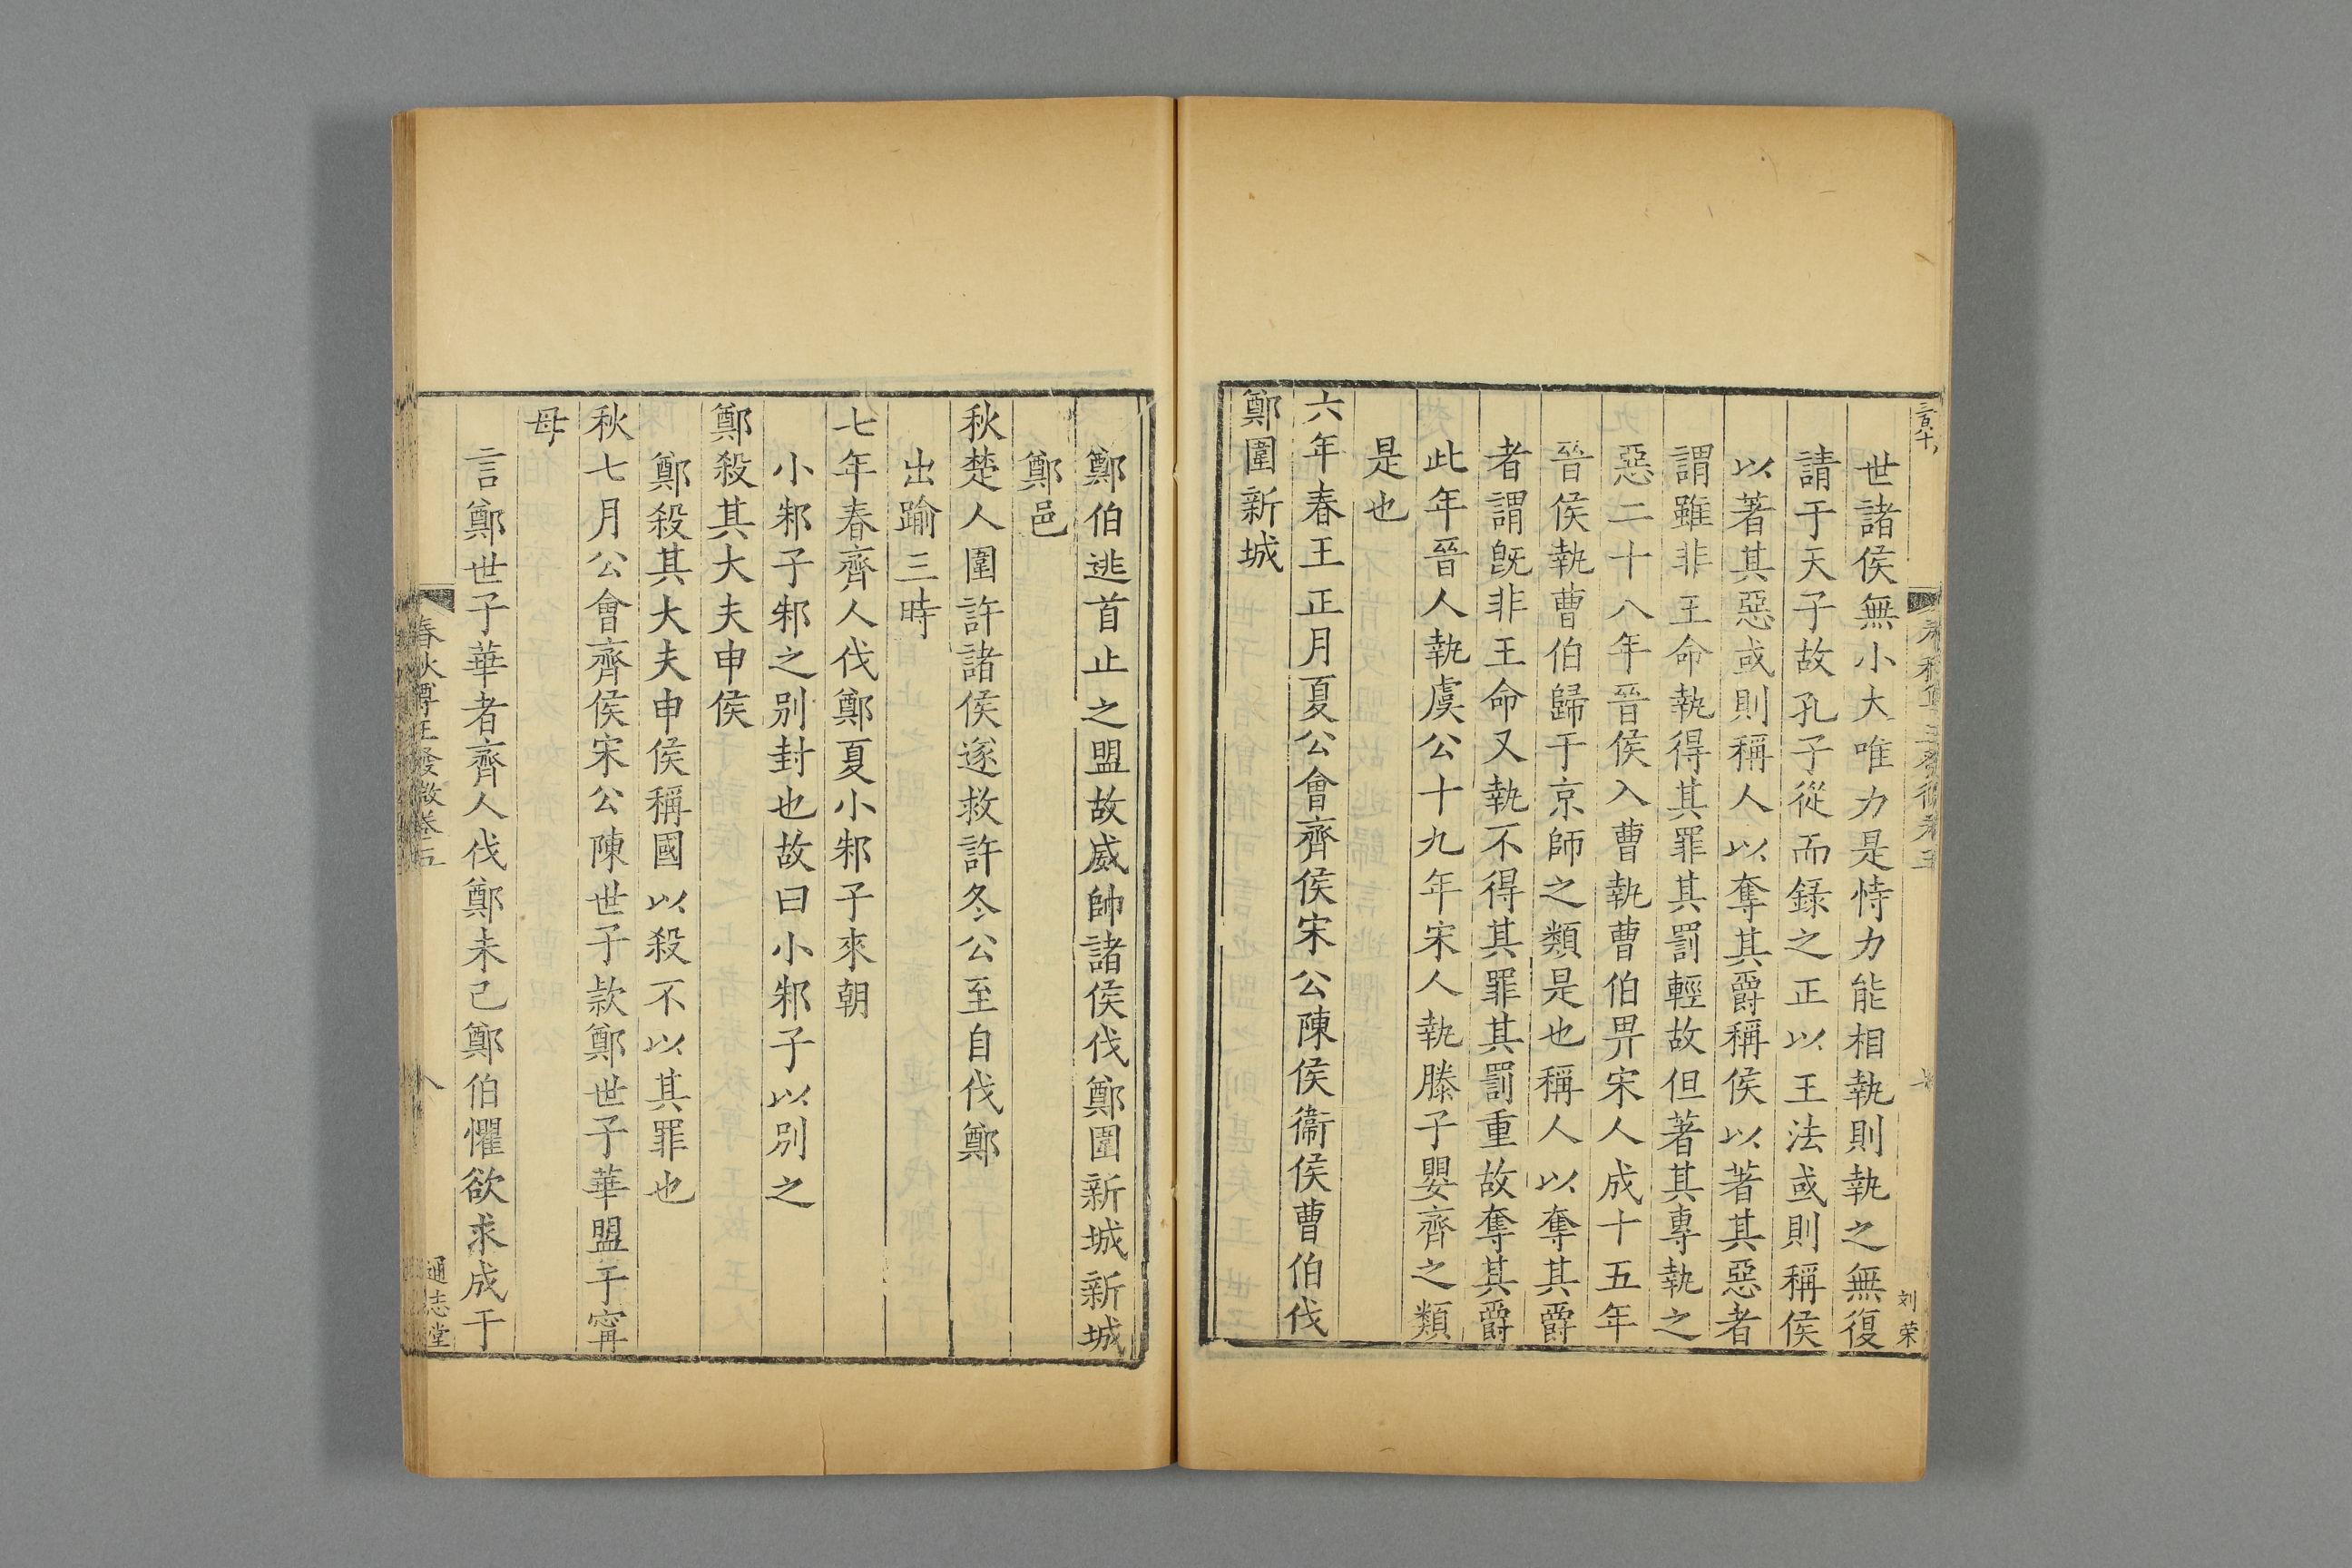 世諸侯無小大唯力是恃力能相執則執之無復
請于天子故孔子從而録之正以王法或則稱侯
以著其惡或則稱人以奪其爵稱侯以著其惡者
謂雖非王命執得其罪其罰輕故但著其專執之
惡二十八年晉侯入曹執曹伯畀宋人成十五年
晉侯執曹伯歸于京師之類是也稱人以奪其爵
者謂旣非王命又執不得其罪其罰重故奪其爵
此年晉人執虞公十九年宋人執滕子嬰齊之類
是也
六年春王正月夏公會齊侯宋公陳侯衞侯曹伯伐
鄭圍新城
刘荣
鄭伯逃首止之盟故威帥諸侯伐鄭圍新城新城
鄭邑
秋楚人圍許諸侯遂救許冬公至自伐鄭
出踰三時
七年春齊人伐鄭夏小邾子來朝
小邾子邾之別封也故曰小邾子以別之
鄭殺其大夫申侯
鄭殺其大夫申侯稱國以殺不以其罪也
秋七月公會齊侯宋公陳世子款鄭世子華盟于甯
母
言鄭世子華者齊人伐鄭未已鄭伯懼欲求成于
春秋尊王發微卷五
八
通志堂